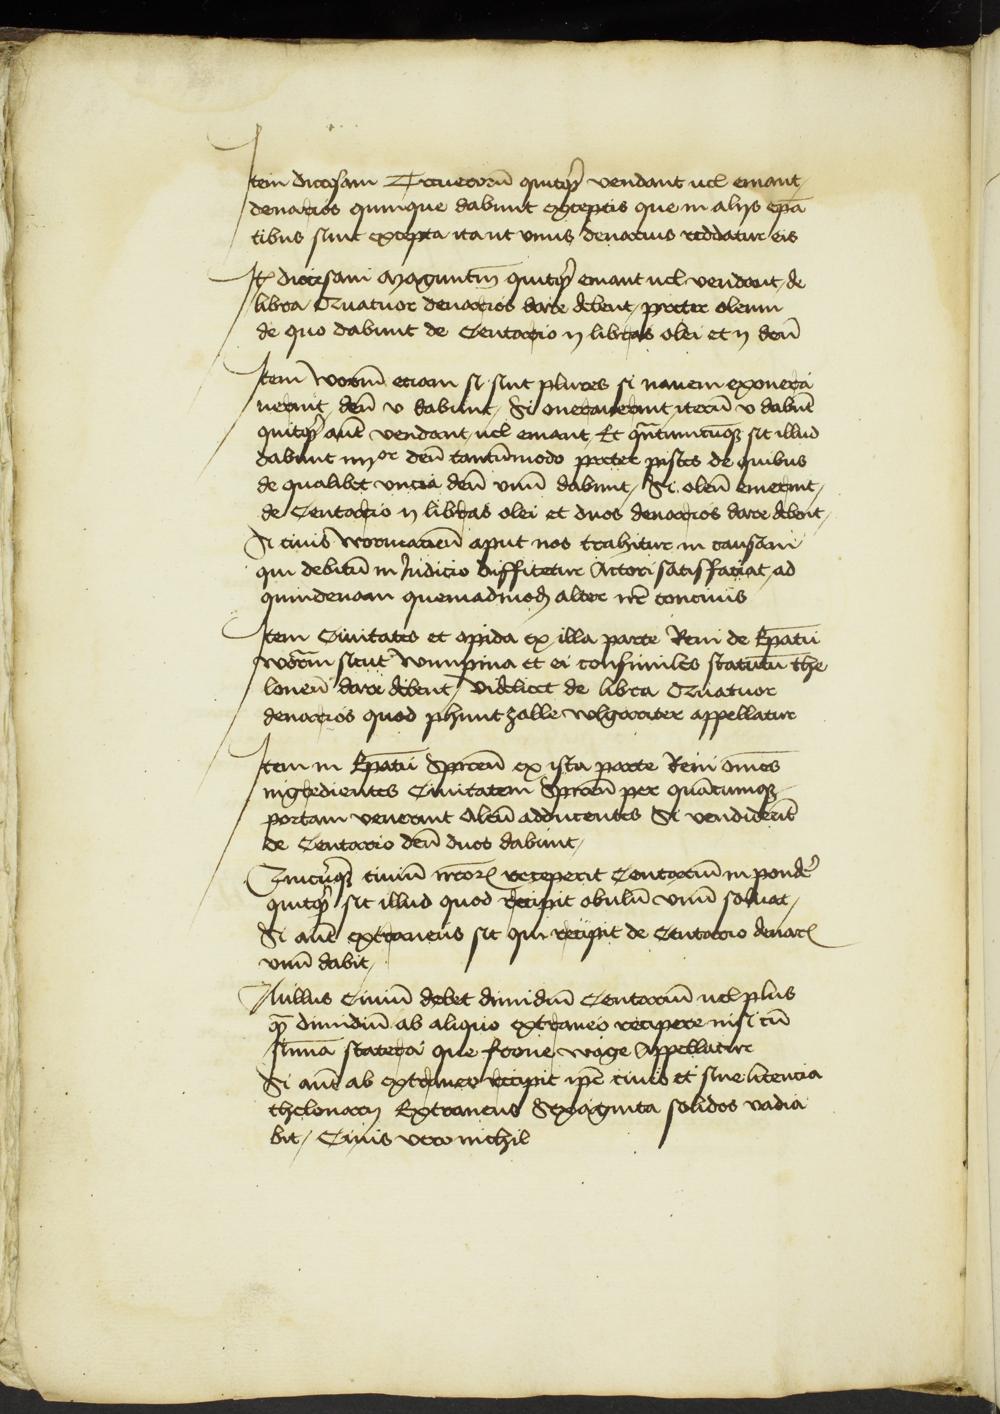 Item diocesani Treuerorū quitq̄ vendant ucl emant/
denarios quinque dabunt exceptis que in alijs ep̄a
tibus sunt excepta ita ut vnus denarius reddatur eis
It̄ diocesani Magunt̄n quitq̄ emant ucl vendant/ de
libra Quatuor denarios dare debent/ preter oleum
de quo dabunt de Centario ij libras olei et ij den̄
Item Worm̄ etiam si sint plures si nauem exonera
uerint/ den̄ v dabunt/ Si onerauerint iterū v dabūt
quitq̄ aūt vendant/ ucl emant/ Et quātumcūq sit illud
dabunt iiijor den̄ tantūmodo preter pisces de quibus
de qualibet vncia den̄ vnū dabunt/ Si oleū emerint/
de Centario ij libras olei et duos denarios dare debent/
Si ciuis Wormacien̄ aput nos trahitur in causam
qui debitū in Judicio diffitetur Actori satisfaciat/ ad
quindenam quemadmod̄ alter nr̄ conciuis
Item Ciuitates et opida ex illa parte Reni de Ep̄atu
Worm̄ sicut Wimpina et ei consimiles statutū the
loneū dare debent/ videlicet de libra Quatuor
denarios quod phuntzolle wlgariter appellatur
Item in Ep̄atu Spiren̄ ex ista parte Reni om̄es
ingredientes Ciuitatem Spiren̄ per quācumq
portam venerint Oleū adducentes Si vendiderīt
de Centario den̄ duos dabunt/
Quicūq ciuiū nr̄or receperit Centariū in pondē
quitq̄ sit illud quod recipit obulū vnū soluat/
Si aūt extraneus sit qui recipit de Centario denar
vnū dabit/
Nullus Ciuiū debet dimidiū Centariū ucl plus
q̄ dimidiū ab aliquo extraneo recipere nisi cū
sūma statera que frone wage Appellatur
Si aūt ab extraneo recipit ip̄e ciuis et sine licencia
thelonarij Extraneus Sexaginta solidos vadia
bit/ Ciuis vero nichil